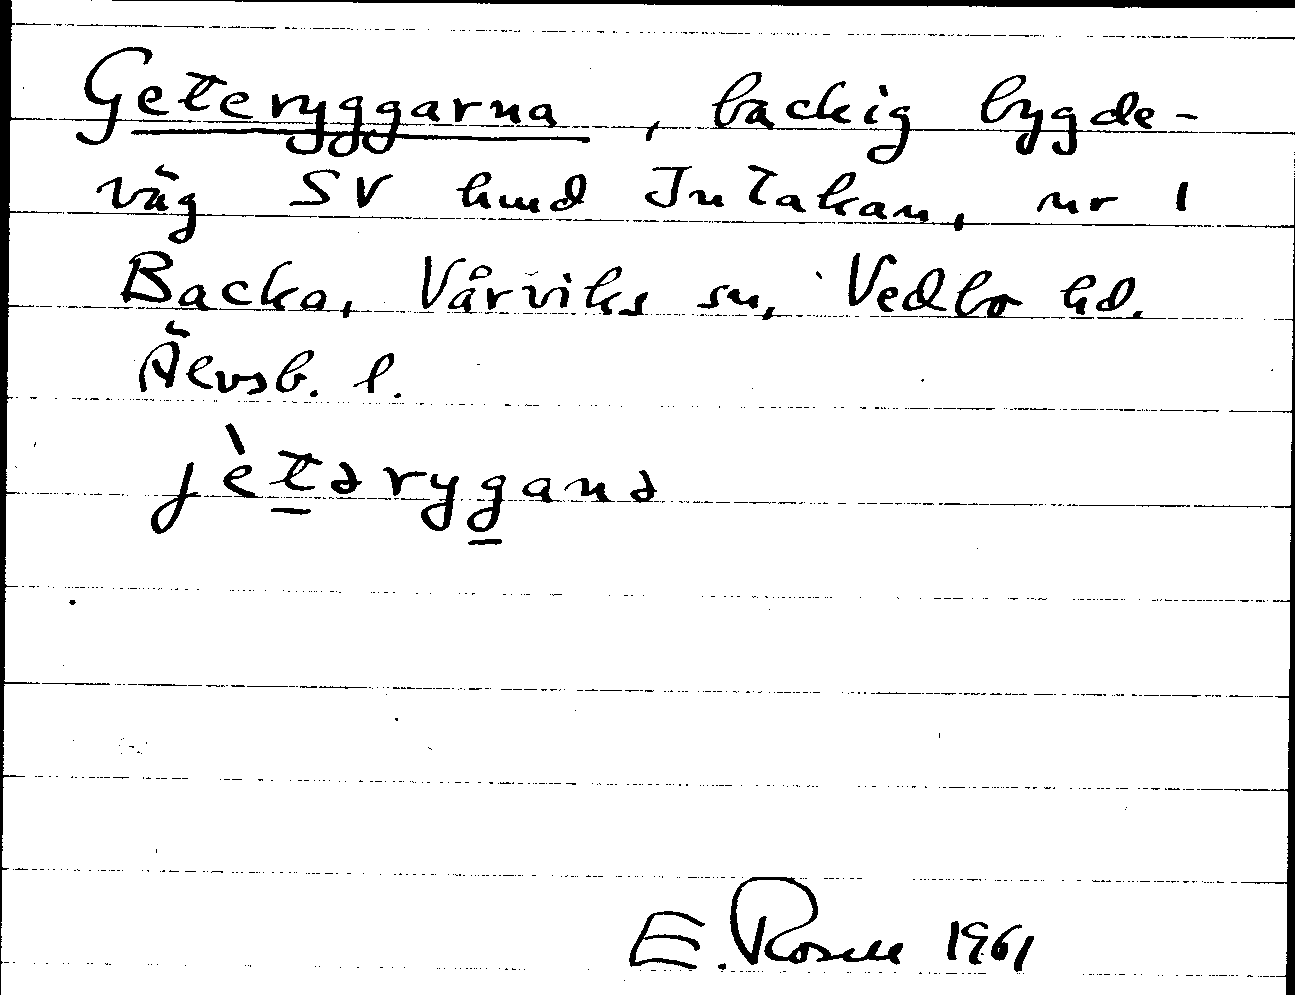 Geteryggarna, backig bygde-
väg SV hmd Jutakan, nr 1
Backa, Vårviks sn, Vedbo hd.
Älvsb. l.
jètəryganə
E. Rosell 1961